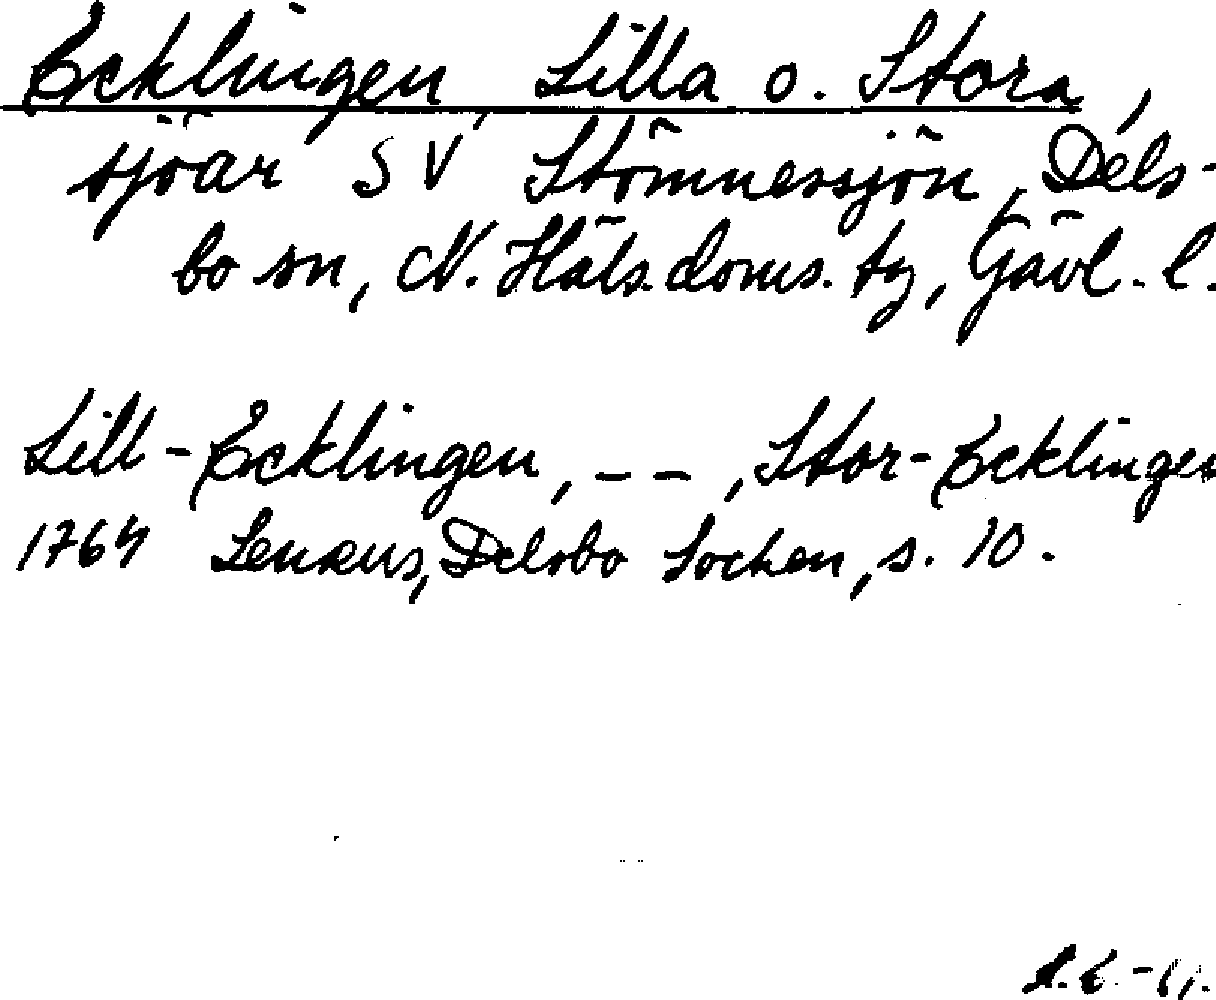 Ecklingen, Lilla o. Stora,
sjöar SV Stömnessjön, Dels-
bo sn, N. Häls. doms. tg, Gävl. l.
Lill-Ecklingen, - - , Stor-Ecklingen
1764 Lenæus, Delsbo Sochen, s. 10.